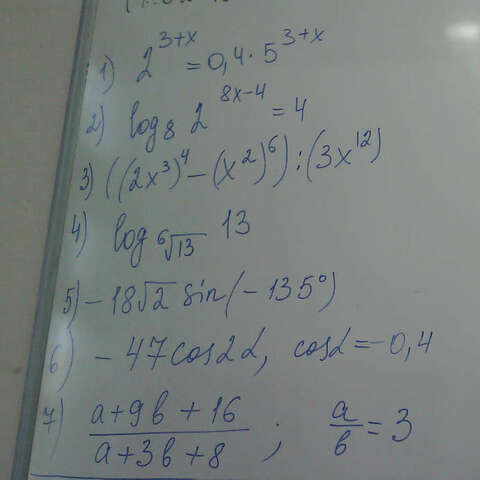 1) 2^{3+x} = 0,4 · 5^{3+x}
2) log_8 2^{8x-4} = 4
3) ((2x^3)^4 - (x^2)^6) : (3x^{12})
4) log_{\sqrt[6]{13}} 13
5) - 18√2 sin(-135°)
6) - 47cos2α, cosα = -0,4
7) \frac{a+9b+16}{a+3b+8} ; \frac{a}{b} = 3